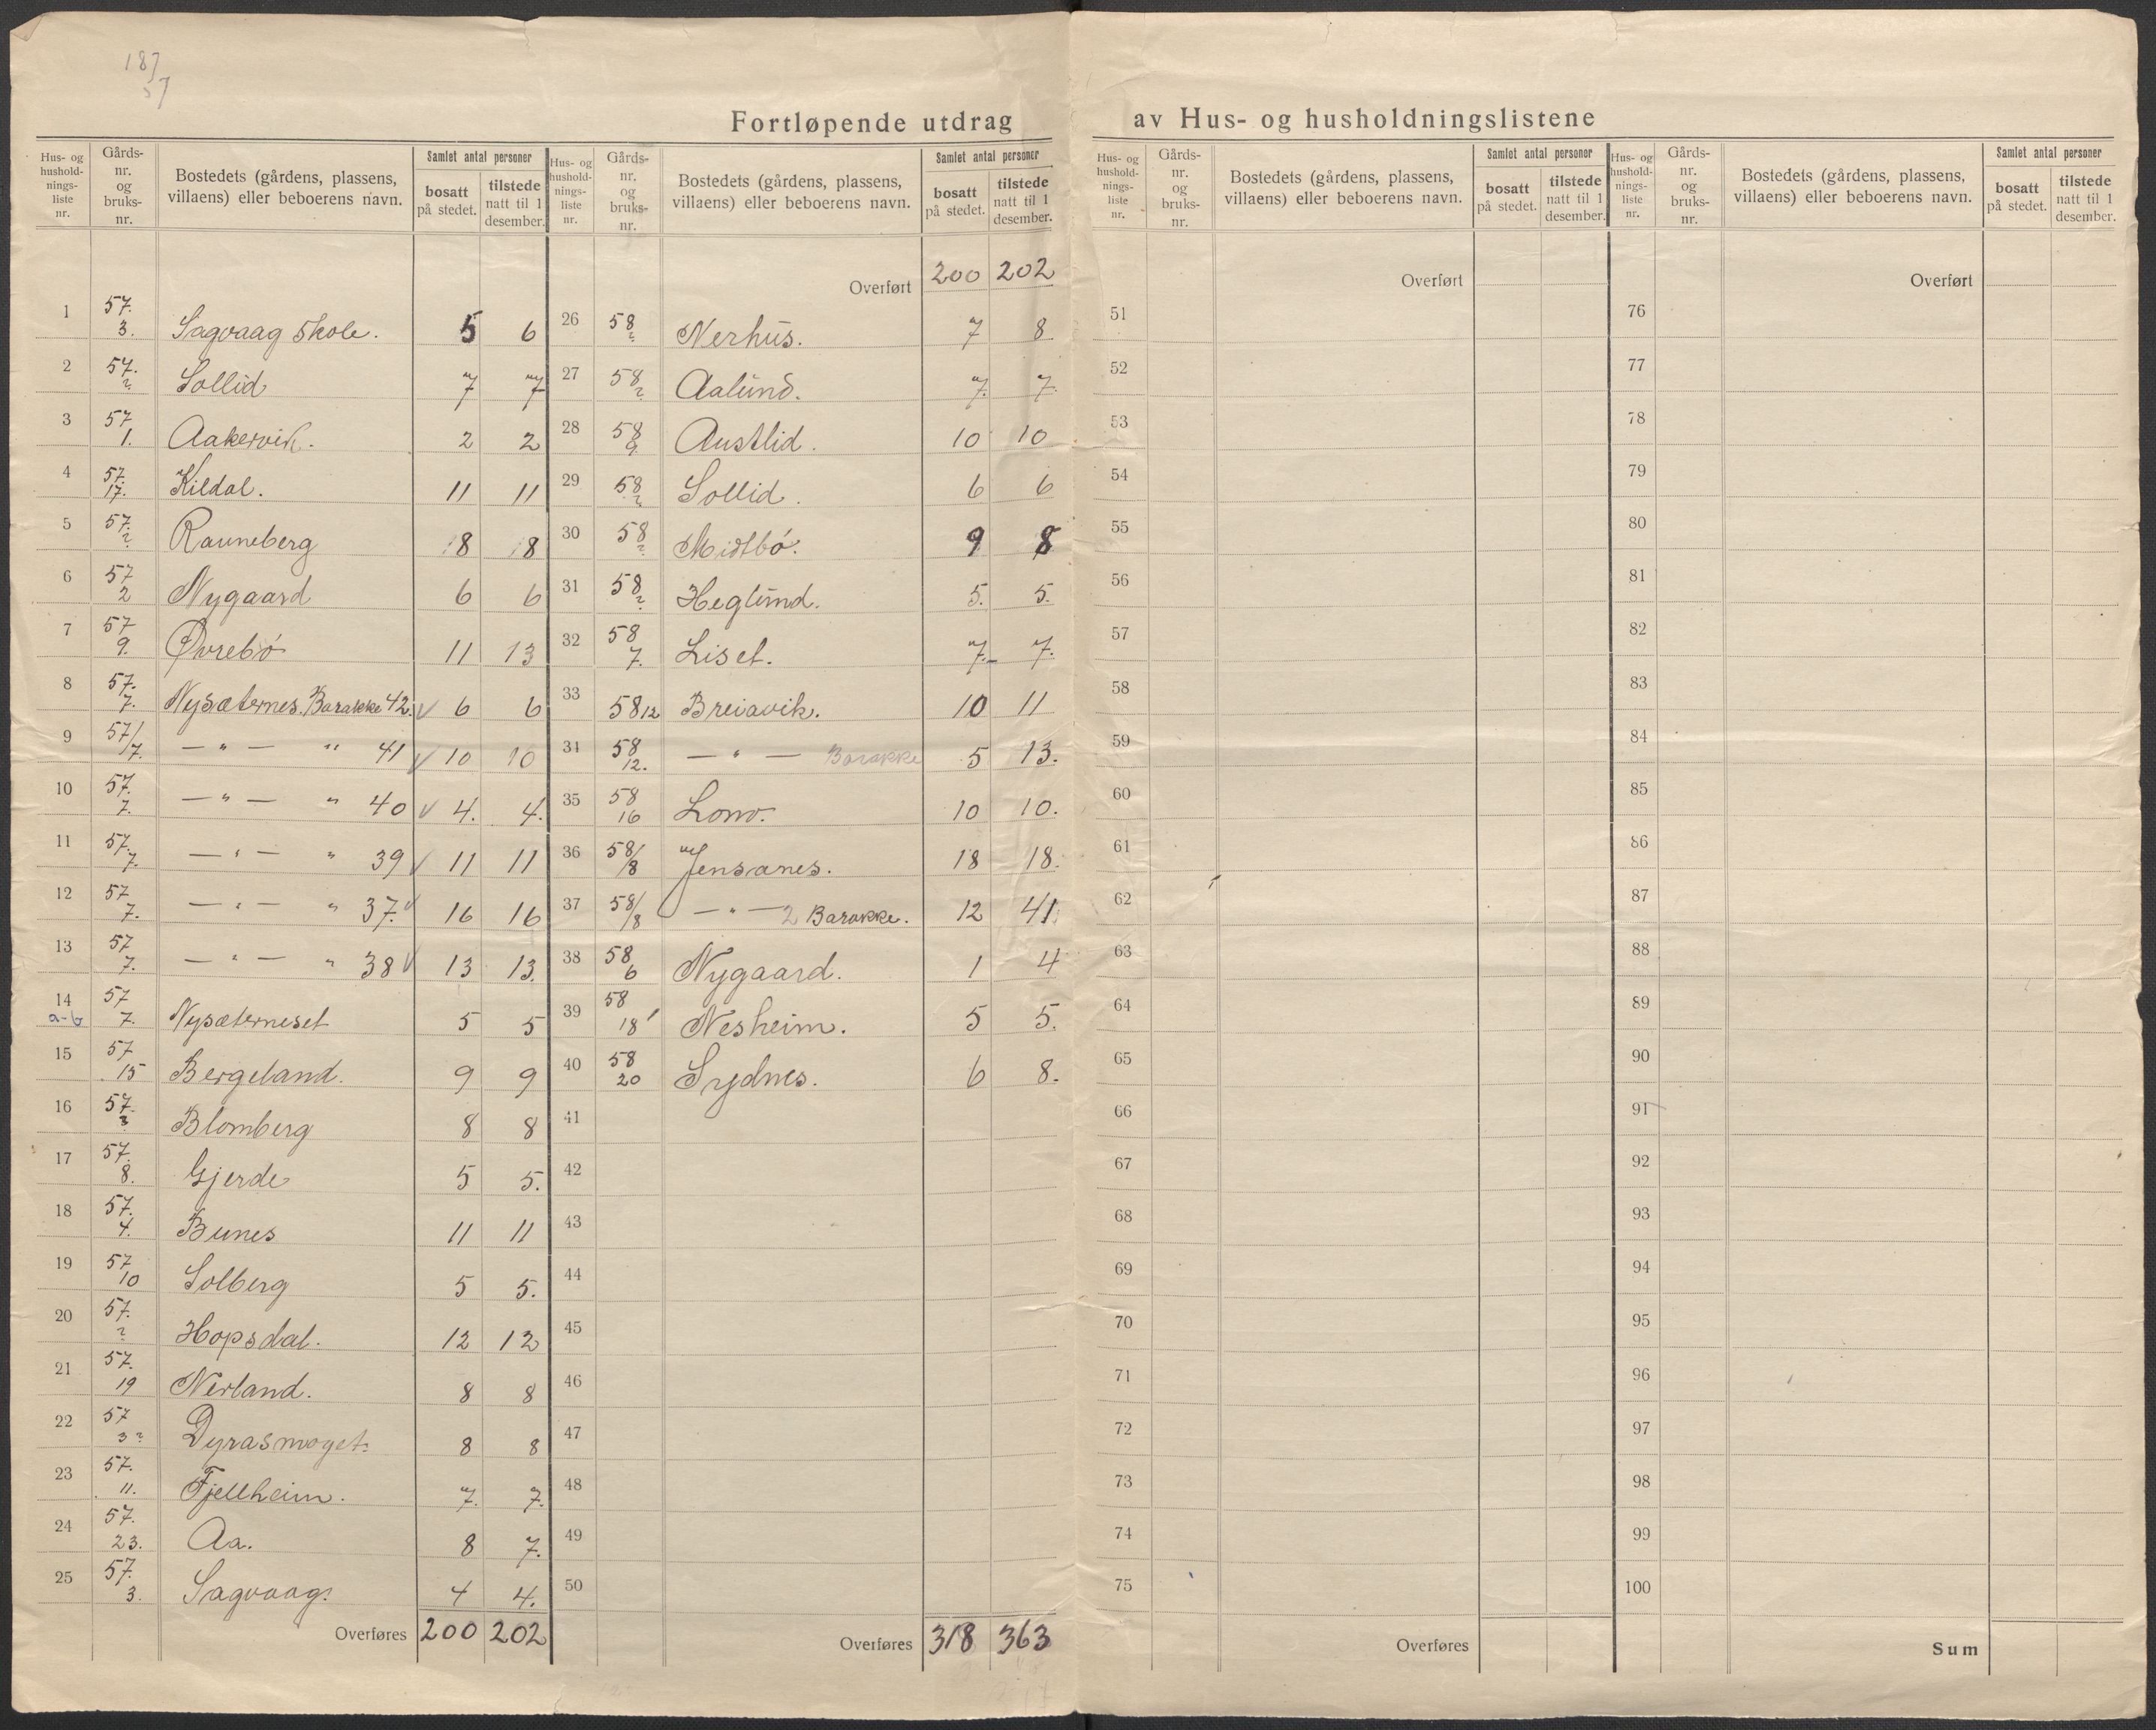 187
57
Fortløpende utdrag av Hus- og husholdningslistene
Hus- og hushold-nings-liste nr. | Gårds-nr. og bruks-nr. | Bostedets (gårdens, plassens, villaens) eller beboerens navn. | Samlet antal personer | bosatt på stedet. | tilstede natt til 1 desember.
1 | 57. 3. | Sagvaag Skole. | 5 | 6
2 | 57. ? | Sollid | 7 | 7
3 | 57 1. | Aakervik. | 2 | 2
4 | 57. 17. | Kildal. | 11 | 11
5 | 57. ? | Rauneberg | 8 | 8
6 | 57 2 | Nygaard | 6 | 6
7 | 57 9. | Øvrebö | 11 | 13
8 | 57. 7. | Nysæternes. Barakke 42. √ | 6 | 6
9 | 57/7. | — " — " 41 √ | 10 | 10
10 | 57. 7. | — " — " 40 √ | 4. | 4.
11 | 57. 7. | — " — " 39 √ | 11 | 11
12 | 57 7. | — " — " 37. √ | 16 | 16
13 | 57 7. | — " — " 38 √ | 13 | 13.
14 a-b | 57 7. | Nysæterneset | 5 | 5
15 | 57 15 | Bergeland. | 9 | 9
16 | 57. ? | Blomberg | 8 | 8
17 | 57. 8. | Gjerde | 5 | 5.
18 | 57. 4. | Bunes | 11 | 11
19 | 57 10 | Solberg | 5 | 5.
20 | 57. ? | Hopsdal. | 12 | 12
21 | 57. 19 | Nerland. | 8 | 8
22 | 57 3 ? | Dyrasmoget. | 8 | 8
23 | 57. 11. | Fjellheim. | 7. | 7.
24 | 57. 23. | Aa. | 8 | 7.
25 | 57. 3. | Sagvaag. | 4 | 4.
Overføres | 200 | 202
Hus- og hushold-nings-liste nr. | Gårds-nr. og bruks-nr. | Bostedets (gårdens, plassens, villaens) eller beboerens navn. | Samlet antal personer | bosatt på stedet. | tilstede natt til 1 desember.
Overført | 200 | 202
26 | 58 ? | Nerhus. | 7 | 8
27 | 58 ? | Aalund. | 7. | 7.
28 | 58 9. | Austlid. | 10 | 10
29 | 58 ? | Sollid. | 6 | 6
30 | 58 ? | Midtbö. | 9 | 8
31 | 58 ? | Heglund. | 5. | 5.
32 | 58 7. | Liset. | 7. | 7.
33 | 58 12 | Breiavik. | 10 | 11
34 | 58 12. | — " — Barakke | 5 | 13.
35 | 58 16 | Lono. | 10 | 10.
36 | 58/8 | Jensanes. | 18 | 18.
37 | 58/8 | — " — 2 Barakke. | 12 | 41.
38 | 58 6 | Nygaard. | 1 | 4
39 | 58 18 | Nesheim. | 5 | 5.
40 | 58 20 | Sydnes. | 6 | 8.
41
42
43
44
45
46
47
48
49
50
Overføres | 318 | 363
Hus- og hushold-nings-liste nr. | Gårds-nr. og bruks-nr. | Bostedets (gårdens, plassens, villaens) eller beboerens navn. | Samlet antal personer | bosatt på stedet. | tilstede natt til 1 desember.
Overført
51
52
53
54
55
56
57
58
59
60
61
62
63
64
65
66
67
68
69
70
71
72
73
74
75
Overføres
Hus- og hushold-nings-liste nr. | Gårds-nr. og bruks-nr. | Bostedets (gårdens, plassens, villaens) eller beboerens navn. | Samlet antal personer | bosatt på stedet. | tilstede natt til 1 desember.
Overført
76
77
78
79
80
81
82
83
84
85
86
87
88
89
90
91
92
93
94
95
96
97
98
99
100
Sum